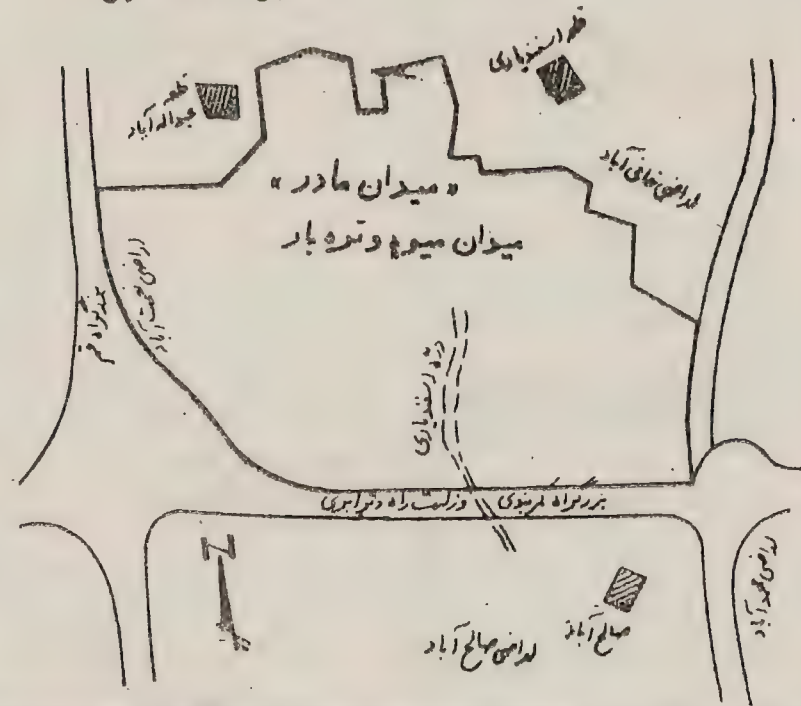 قلعه اسفندیاری
قلعه
عبداله آباد
اراضی خانی آباد
«میدان مادر»
میدان میوه و تره بار
اراضی نعمت آباد
بزرگراه قم
دره اسفندیاری
بزرگراه
وزارت راه و ترابری
N
صالح آباد
اراضی صالح آباد